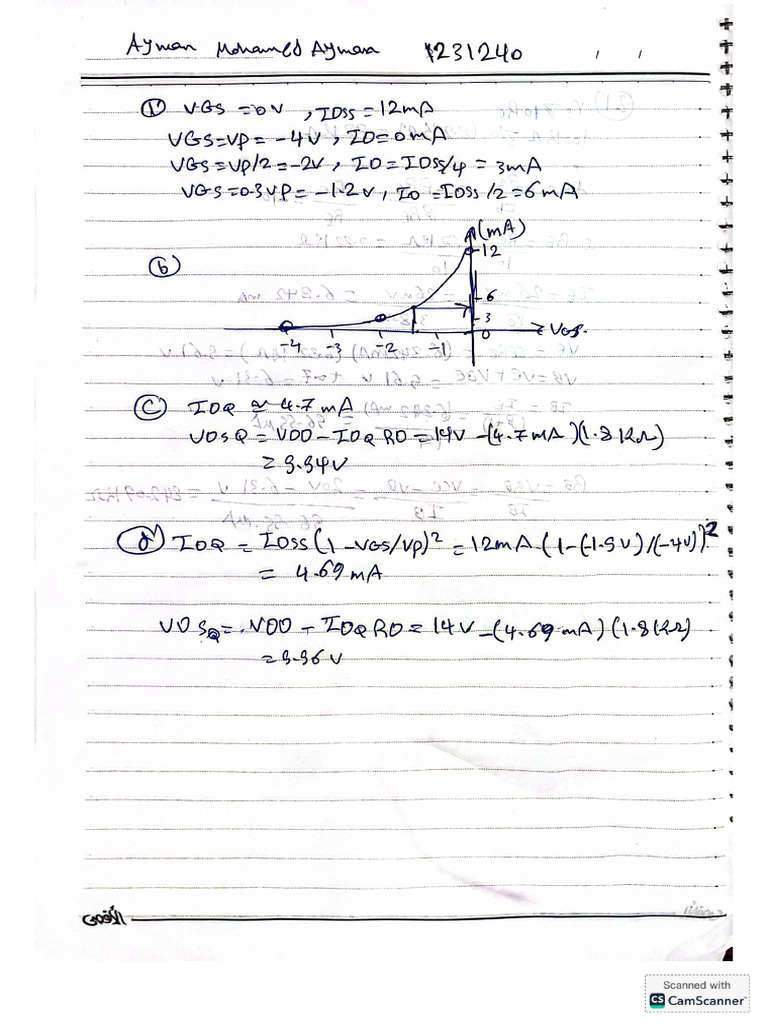 Ayman Mohamed Aymana 1231240
VGS = 0V , IDSS = 12mA
VGS = VP = -4V , ID = 0mA
VGS = VP/2 = -2V , ID = IDSS/4 = 3mA
VGS = 0.3VP = -1.2V , ID = IDSS/2 = 6mA
(mA)
b
12
6
3
-4 -3 -2 -1 0 VGS
C IDQ ≈ 4.7 mA
VDSQ = VDD - IDQ RD = 14V - (4.7mA)(1.8KΩ)
= 5.54V
d IDQ = IDSS(1 - VGS/VP)² = 12mA (1 - (-1.5V)/(-4V))²
= 4.69 mA
VDSQ = VDD - IDQ RD = 14V - (4.69 mA)(1.8KΩ)
= 5.56V
Scanned with
CS CamScanner